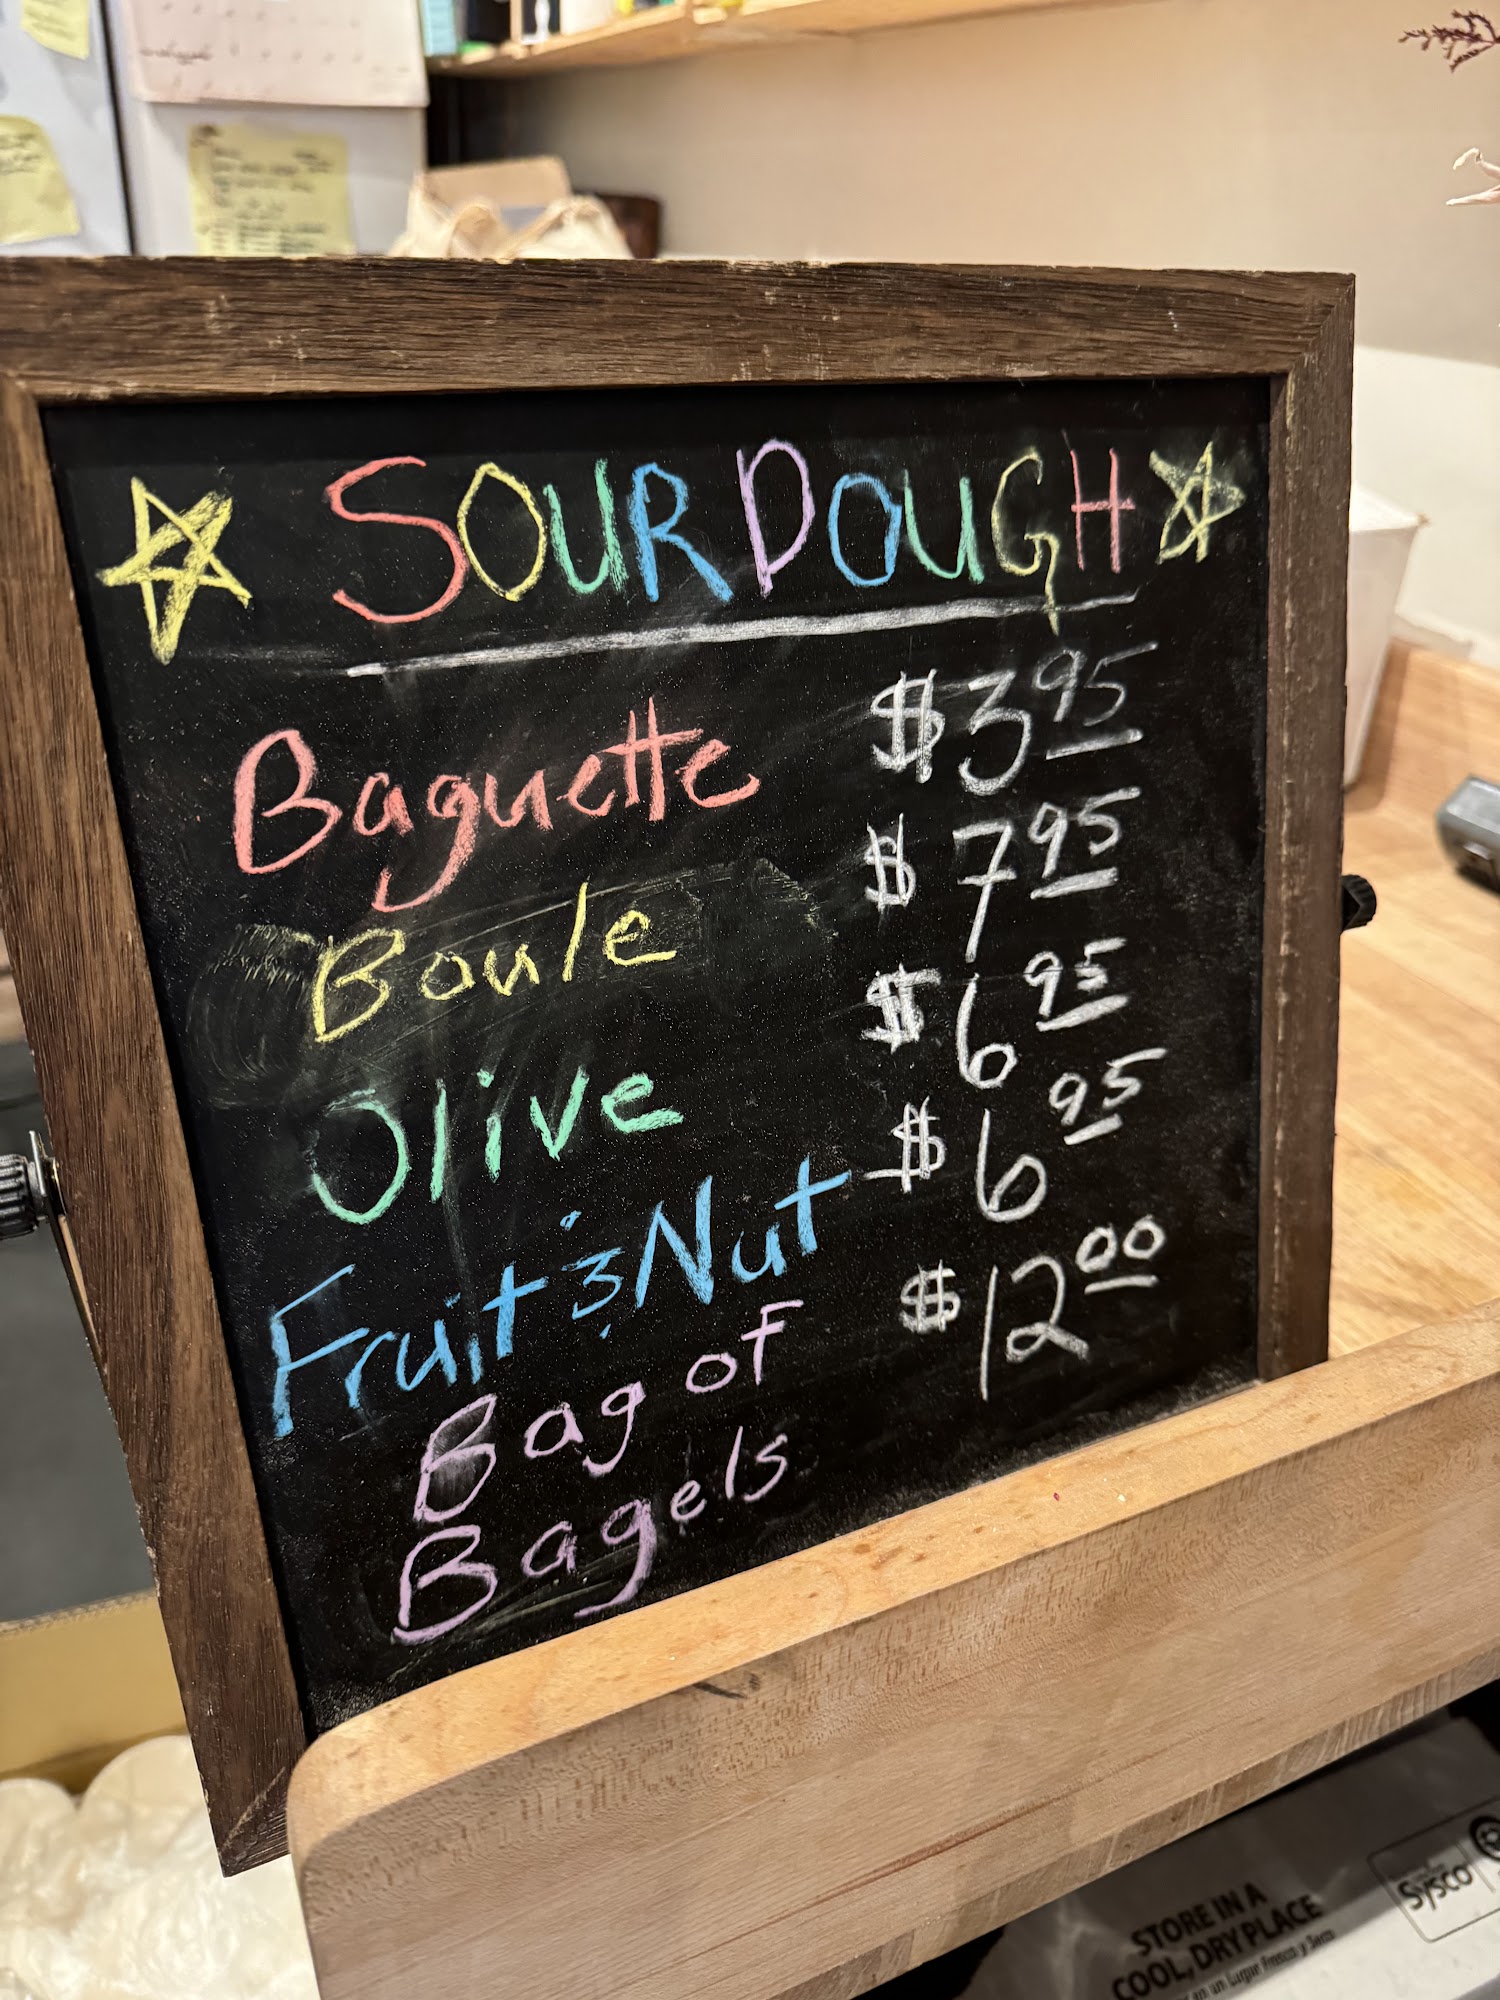 SOURDOUGH
Baguette $3.95
Boule $7.95
Olive $6.95
Fruit & Nut $6.95
Bag of $12.00
Bagels
Sysco
STORE IN A
COOL, DRY PLACE
en un Lugar Fresco y Seco